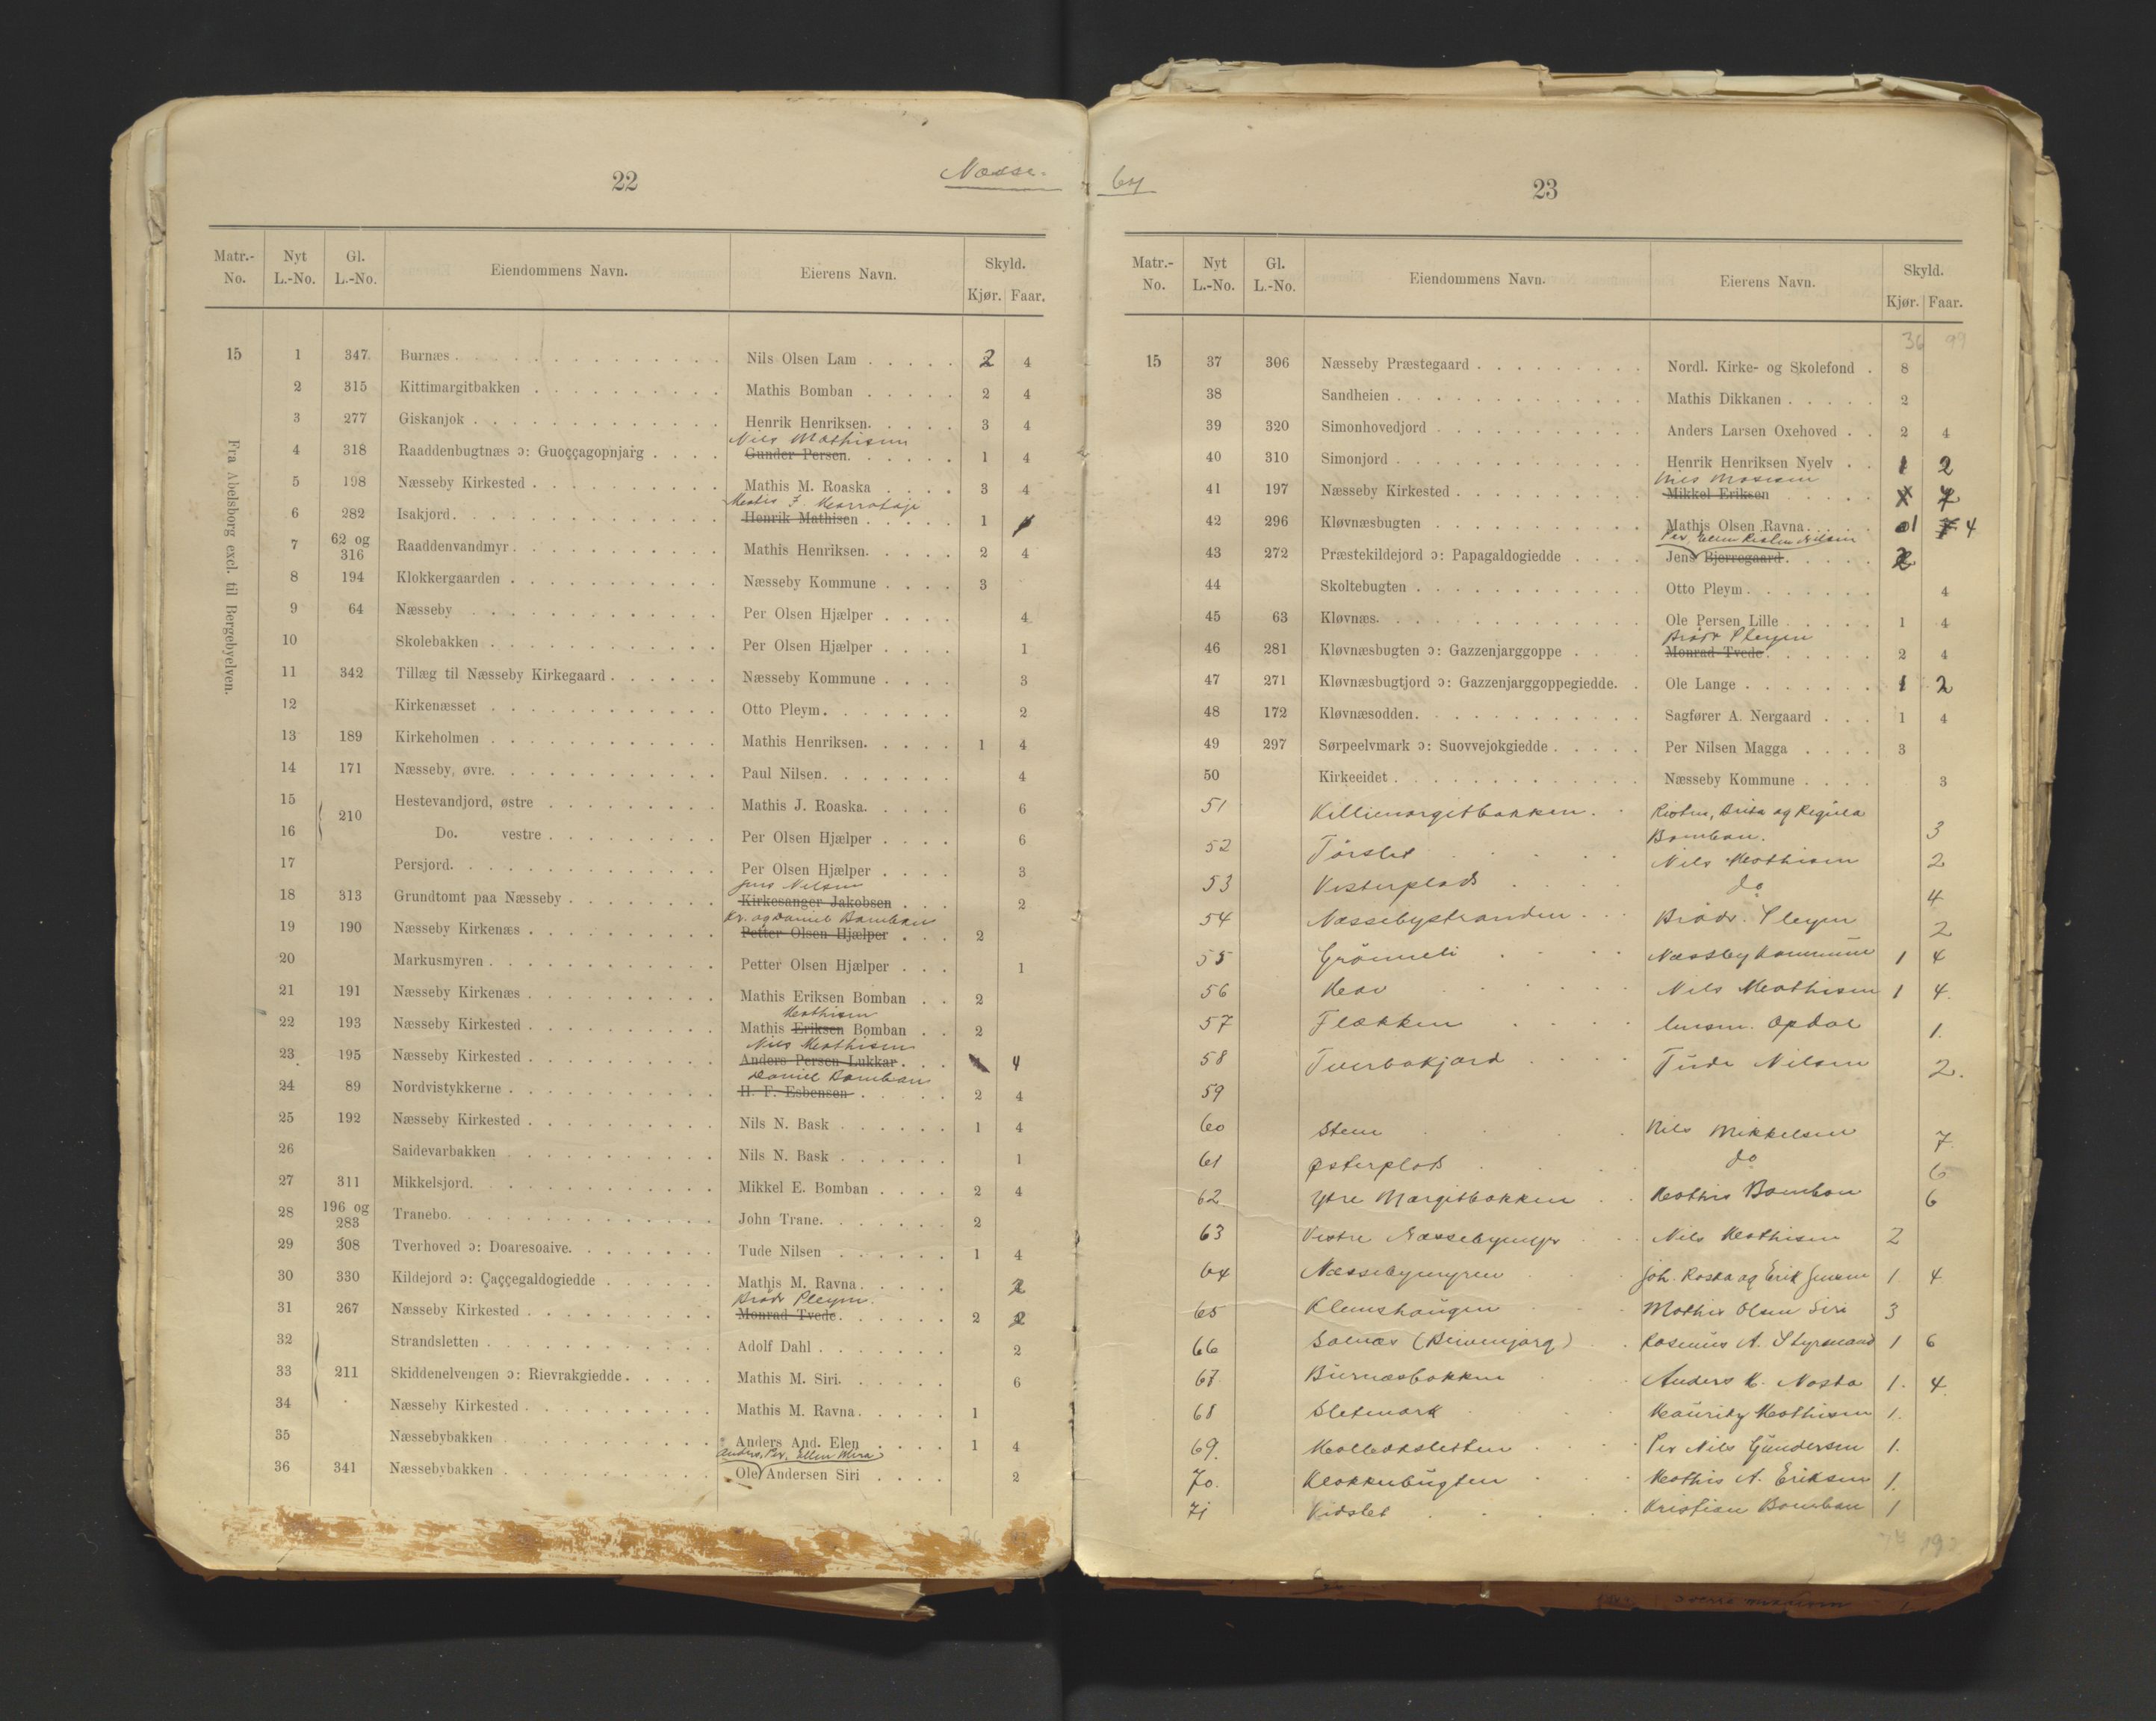 22
Næsse-
Matr.-No. Nyt L.-No. Gl. L.-No. Eiendommens Navn. Eierens Navn. Skyld. Kjør. Faar.
Fra Abelsborg excl. til Bergebyelven.
15 1 347 Burnæs Nils Olsen Lam 2 4
2 315 Kittimargitbakken Mathis Bomban 2 4
3 277 Giskanjok Henrik Henriksen. 3 4
Nils Mathisen
4 318 Raaddenbugtnæs ɔ: Guoççagopnjarg Gunder Persen. 1 4
5 198 Næsseby Kirkested Mathis M. Roaska 3 4
6 282 Isakjord. Henrik Mathisen 1
7 62 og 316 Raaddenvandmyr Mathis Henriksen. 2 4
8 194 Klokkergaarden Næsseby Kommune 3
9 64 Næsseby Per Olsen Hjælper 4
10 Skolebakken Per Olsen Hjælper 1
11 342 Tillæg til Næsseby Kirkegaard Næsseby Kommune 3
12 Kirkenæsset Otto Pleym. 2
13 189 Kirkeholmen Mathis Henriksen. 1 4
14 171 Næsseby, øvre. Paul Nilsen. 4
15 210 Hestevandjord, østre Mathis J. Roaska. 6
16 Do. vestre Per Olsen Hjælper 6
17 Persjord. Per Olsen Hjælper 3
Jens Nilsen
18 313 Grundtomt paa Næsseby Kirkesanger Jakobsen 2
Kr. og Daniel Bomban
19 190 Næsseby Kirkenæs Petter Olsen Hjælper 2
20 Markusmyren Petter Olsen Hjælper 1
21 191 Næsseby Kirkenæs Mathis Eriksen Bomban 2
Mathisen
22 193 Næsseby Kirkested Mathis Eriksen Bomban 2
Nils Mathisen
23 195 Næsseby Kirkested Anders Persen Lukkar. 4
Daniel Bomban
24 89 Nordvistykkerne H. F. Esbensen 2 4
25 192 Næsseby Kirkested Nils N. Bask 1 4
26 Saidevarbakken Nils N. Bask 1
27 311 Mikkelsjord. Mikkel E. Bomban 2 4
28 196 og 283 Tranebo. John Trane. 2
29 308 Tverhoved ɔ: Doaresoaive. Tude Nilsen 1 4
30 330 Kildejord ɔ: Çaççegaldogiedde Mathis M. Ravna. 2
Brødr Pleym.
31 267 Næsseby Kirkested Monrad Tvede. 2 2
32 Strandsletten Adolf Dahl 2
33 211 Skiddenelvengen ɔ: Rievrakgiedde. Mathis M. Siri. 6
34 Næsseby Kirkested Mathis M. Ravna. 1
35 Næssebybakken Anders And. Elen 1 4
Anders, Per, Ellen Mira
36 341 Næssebybakken Ole Andersen Siri 2
by
23
Matr.-No. Nyt L.-No. Gl. L.-No. Eiendommens Navn. Eierens Navn. Skyld. Kjør. Faar.
36 99
15 37 306 Næsseby Præstegaard Nordl. Kirke- og Skolefond 8
38 Sandheien Mathis Dikkanen 2
39 320 Simonhovedjord Anders Larsen Oxehoved 2 4
40 310 Simonjord Henrik Henriksen Nyelv 1 2
41 197 Næsseby Kirkested Mikkel Eriksen
42 296 Kløvnæsbugten Mathis Olsen Ravna. 1 4
43 272 Præstekildejord ɔ: Papagaldogiedde Jens Bjerregaard. 2
44 Skoltebugten Otto Pleym. 4
45 63 Kløvnæs. Ole Persen Lille 1 4
Brødr Pleym
46 281 Kløvnæsbugten ɔ: Gazzenjarggoppe Monrad Tvede. 2 4
47 271 Kløvnæsbugtjord ɔ: Gazzenjarggoppegiedde. Ole Lange 1 2
48 172 Kløvnæsodden. Sagfører A. Nergaard 1 4
49 297 Sørpeelvmark ɔ: Suovvejokgiedde Per Nilsen Magga 3
50 Kirkeeidet Næsseby Kommune 3
51 Killimargitbakken. Kirsten, Brita og Regina
Bomban. 3
52 Tørslet Nils Mathisen 2
53 Vesterplads do 4
54 Næssebystranden Brødr. Pleym 2
55 Grönneli Næsseby Kommune 1 4
56 Nils Mathisen 1 4.
57 Flækken Opdal 1.
58 Tverbakjord Tude Nilsen 2.
59
60 Sten Nils Mikkelsen 7.
61 Østerplads do 6
62 Ytre Margitbakken Mathis Bomban 6
63 Vestre Næssebymyr Nils Mathisen 2
64 Næssebymyren Joh. Roska og Erik Jensen 1 4
65 Klemshaugen Mathis Olsen Siri 3
66 Solnæs (Beivenjarg) Rasmus A. Styrmand 1 6
67 Burnæsbakken Anders K. Nosta 1. 4.
68 Sletmark Mauritz Mathisen 1.
69. Per Nils Gundersen 1.
70. Klokkebugten Mathis A. Eriksen 1.
71 Vidslet Kristian Bomban 1